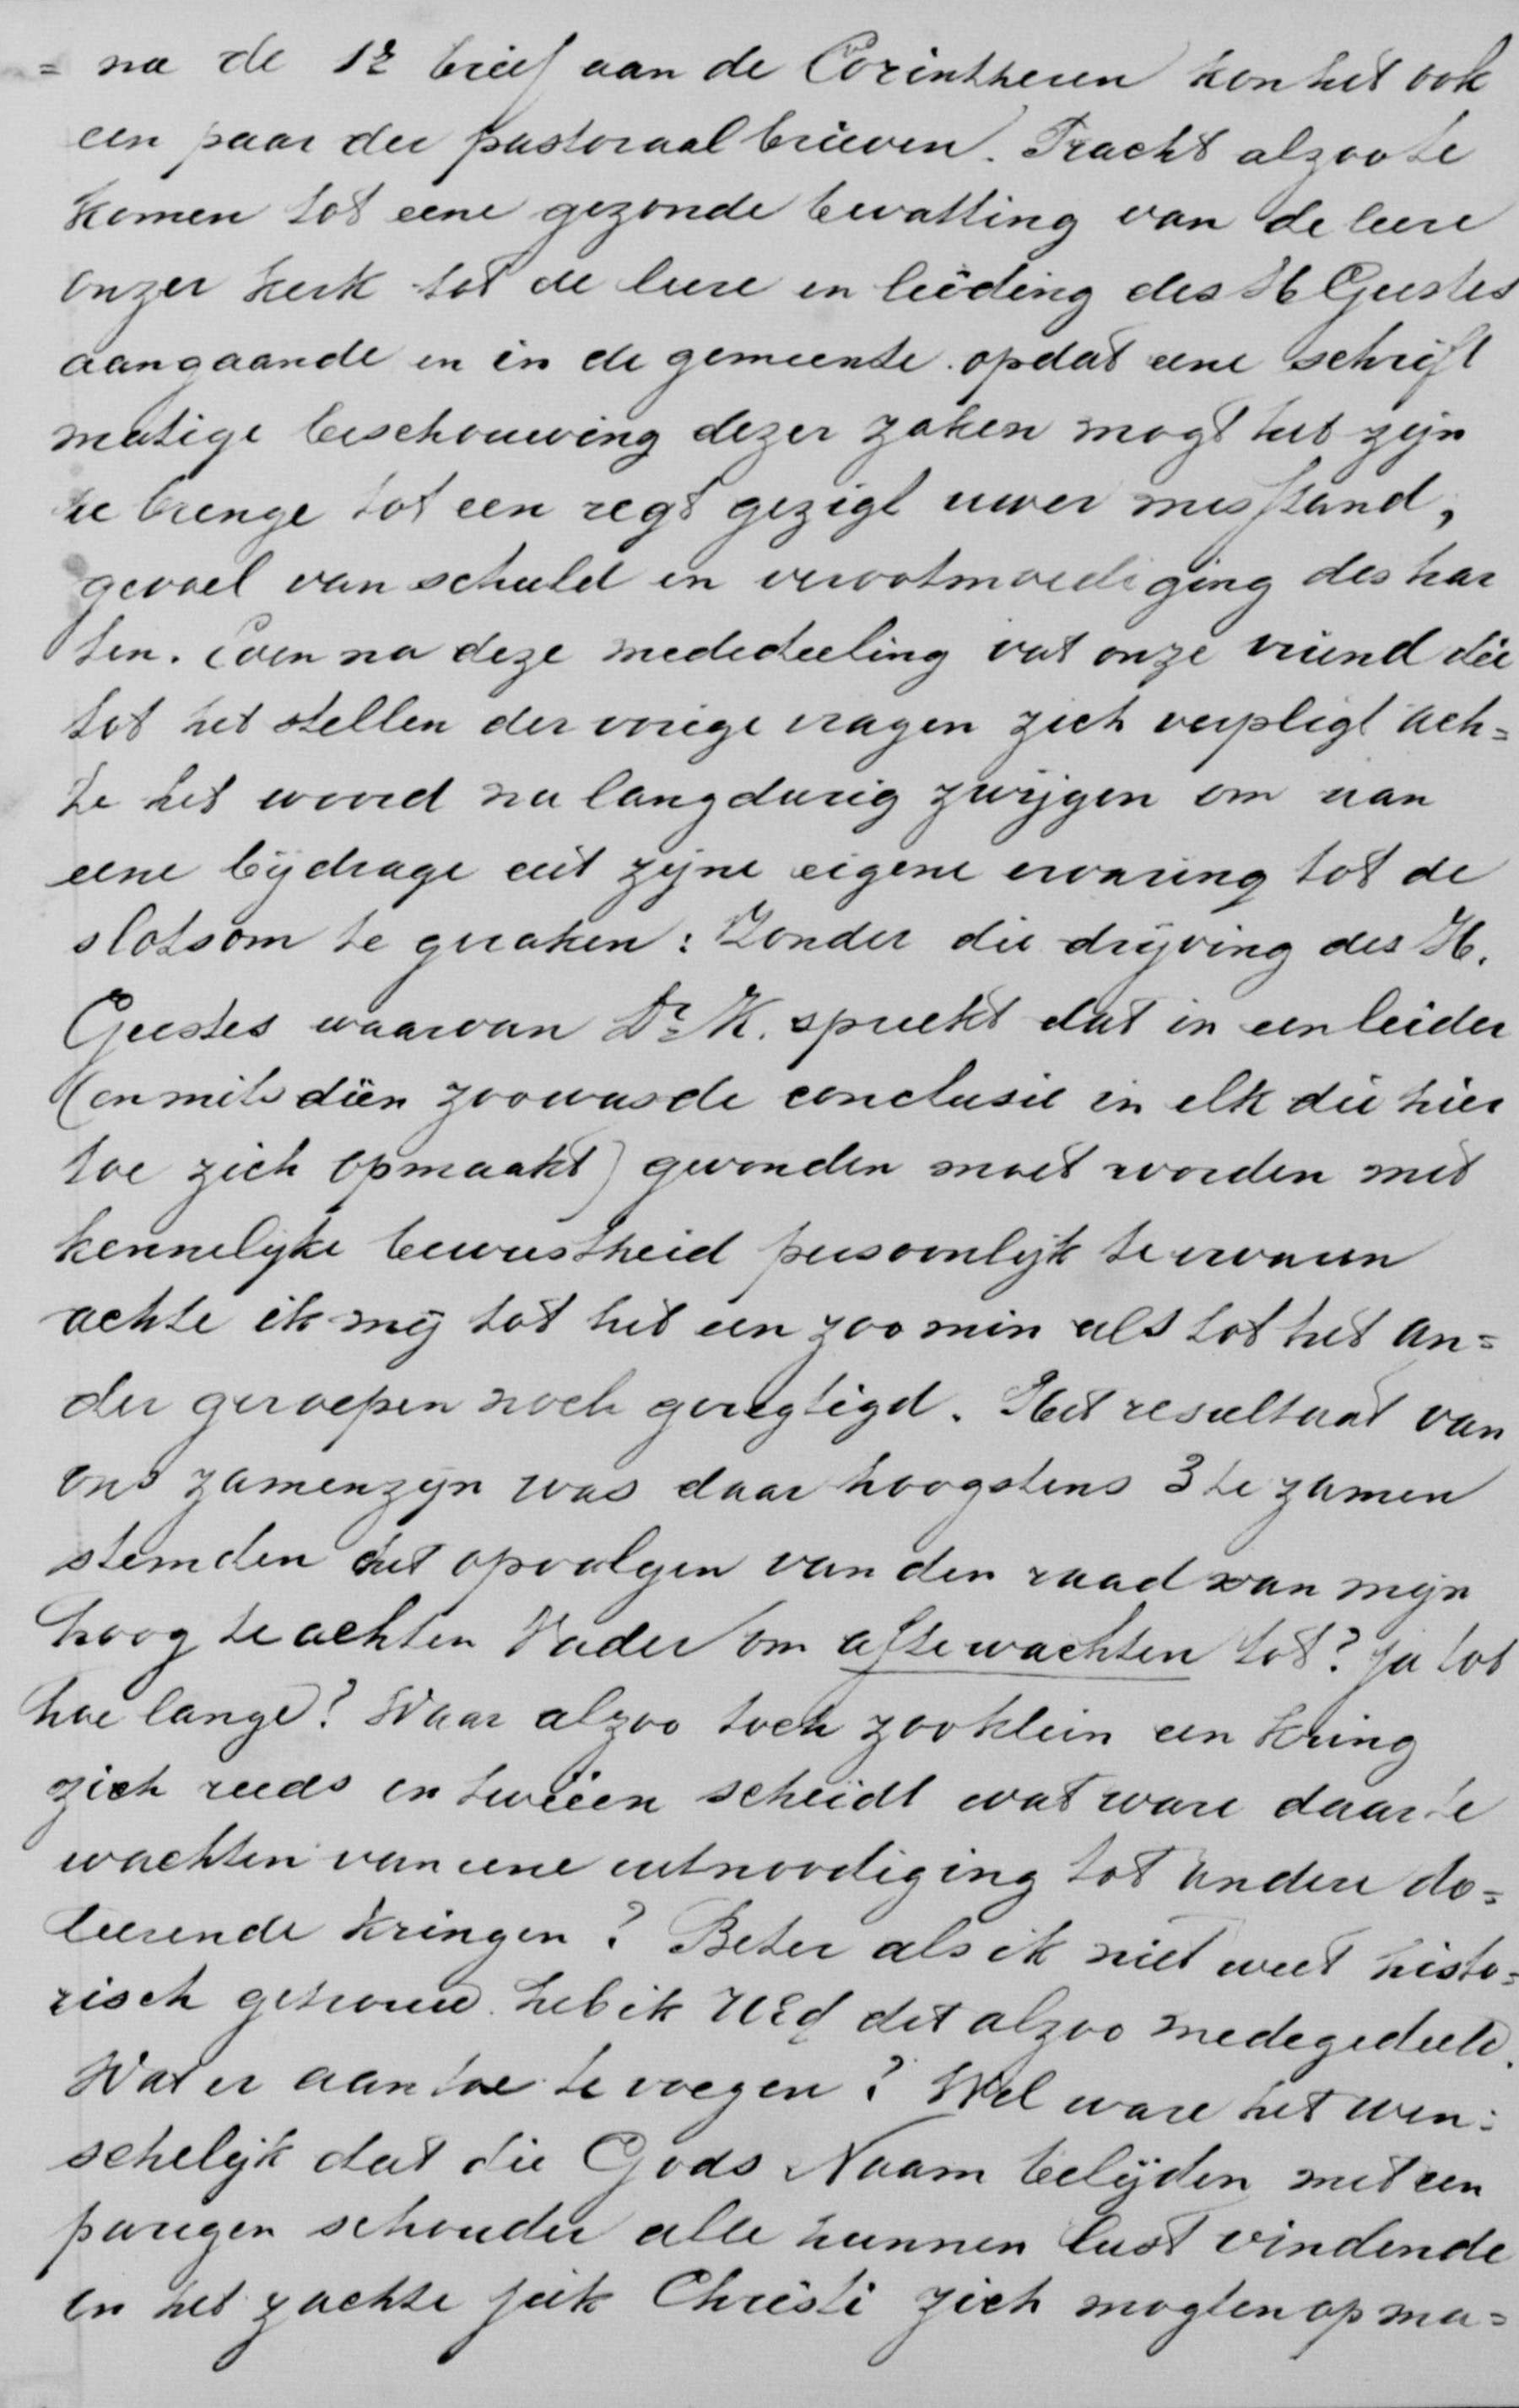 = na de 1e brief aan de Corintheren kon het ook
een paar der pastoraal brieven. Tracht alzoo te
komen tot eene gezonde bevatting van de leere
onzer kerk tot de leere en leiding des H Geestes
aangaande en in de gemeente. opdat eene schrift
matige beschouwing dezer zaken mogt het zijn
te brenge tot een regt gezigt uwer misstand,
gevoel van schuld en verootmoediging des har
ten. Even na deze mededeeling vat onze vriend die
tot het stellen der vorige vragen zich verpligt ach=
te het woord na langdurig zwijgen om aan
eene bijdrage uit zijne eigene ervaring tot de
slotsom te geraken: Zonder die drijving des H.
Geestes waarvan Dr K. spreekt dat in een leider
(en mits dien zoo was de conclusie in elk die hier
toe zich opmaakt) gevonden moet worden met
kennelijke bewustheid persoonlijk te ervaren
achte ik mij tot het een zoo min als tot het an=
der geroepen noch geregtigd. Het resultaat van
ons zamenzijn was daar hoogstens 3 te zamen
stemden het opvolgen van den raad van mijn
hoog te achten Vader om af te wachten tot? ja tot
hoe lange? Waar alzoo toch zoo klein een kring
zich reeds in tweeen scheidt wat ware daar te
wachten van eene uitnoodiging tot andere do=
leerende kringen? Beter als ik niet weet histo=
risch getrouw. heb ik UEd dit alzoo medegedeeld.
Wat er aan toe te voegen? Wel ware het wen=
schelijk dat die Gods Naam belijden met een
parigen schouder alle hunnen lust vindende
in het zachte juk Christi zich mogten opma=